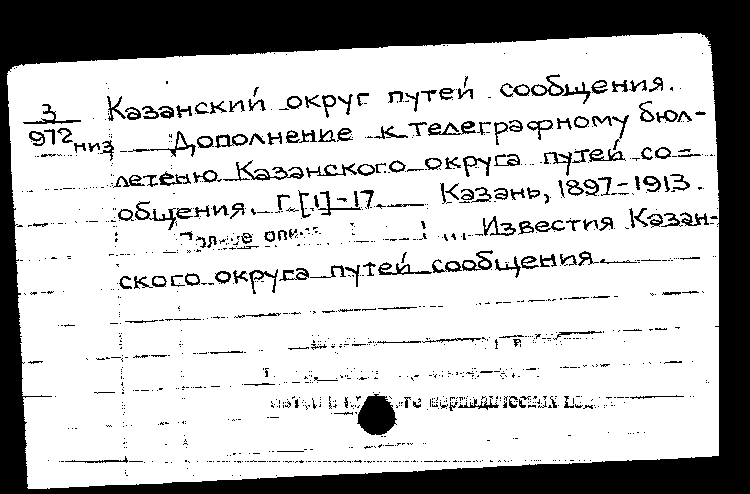 3 Казанский округ путей сообщения.
972 низ Дополнение к телеграфному бюл-
летеню Казанского округа путей со=
общения. Г.[1]-17. Казань, 1897-1913.
... Известия Казан-
ского округа путей сообщения.
периодических